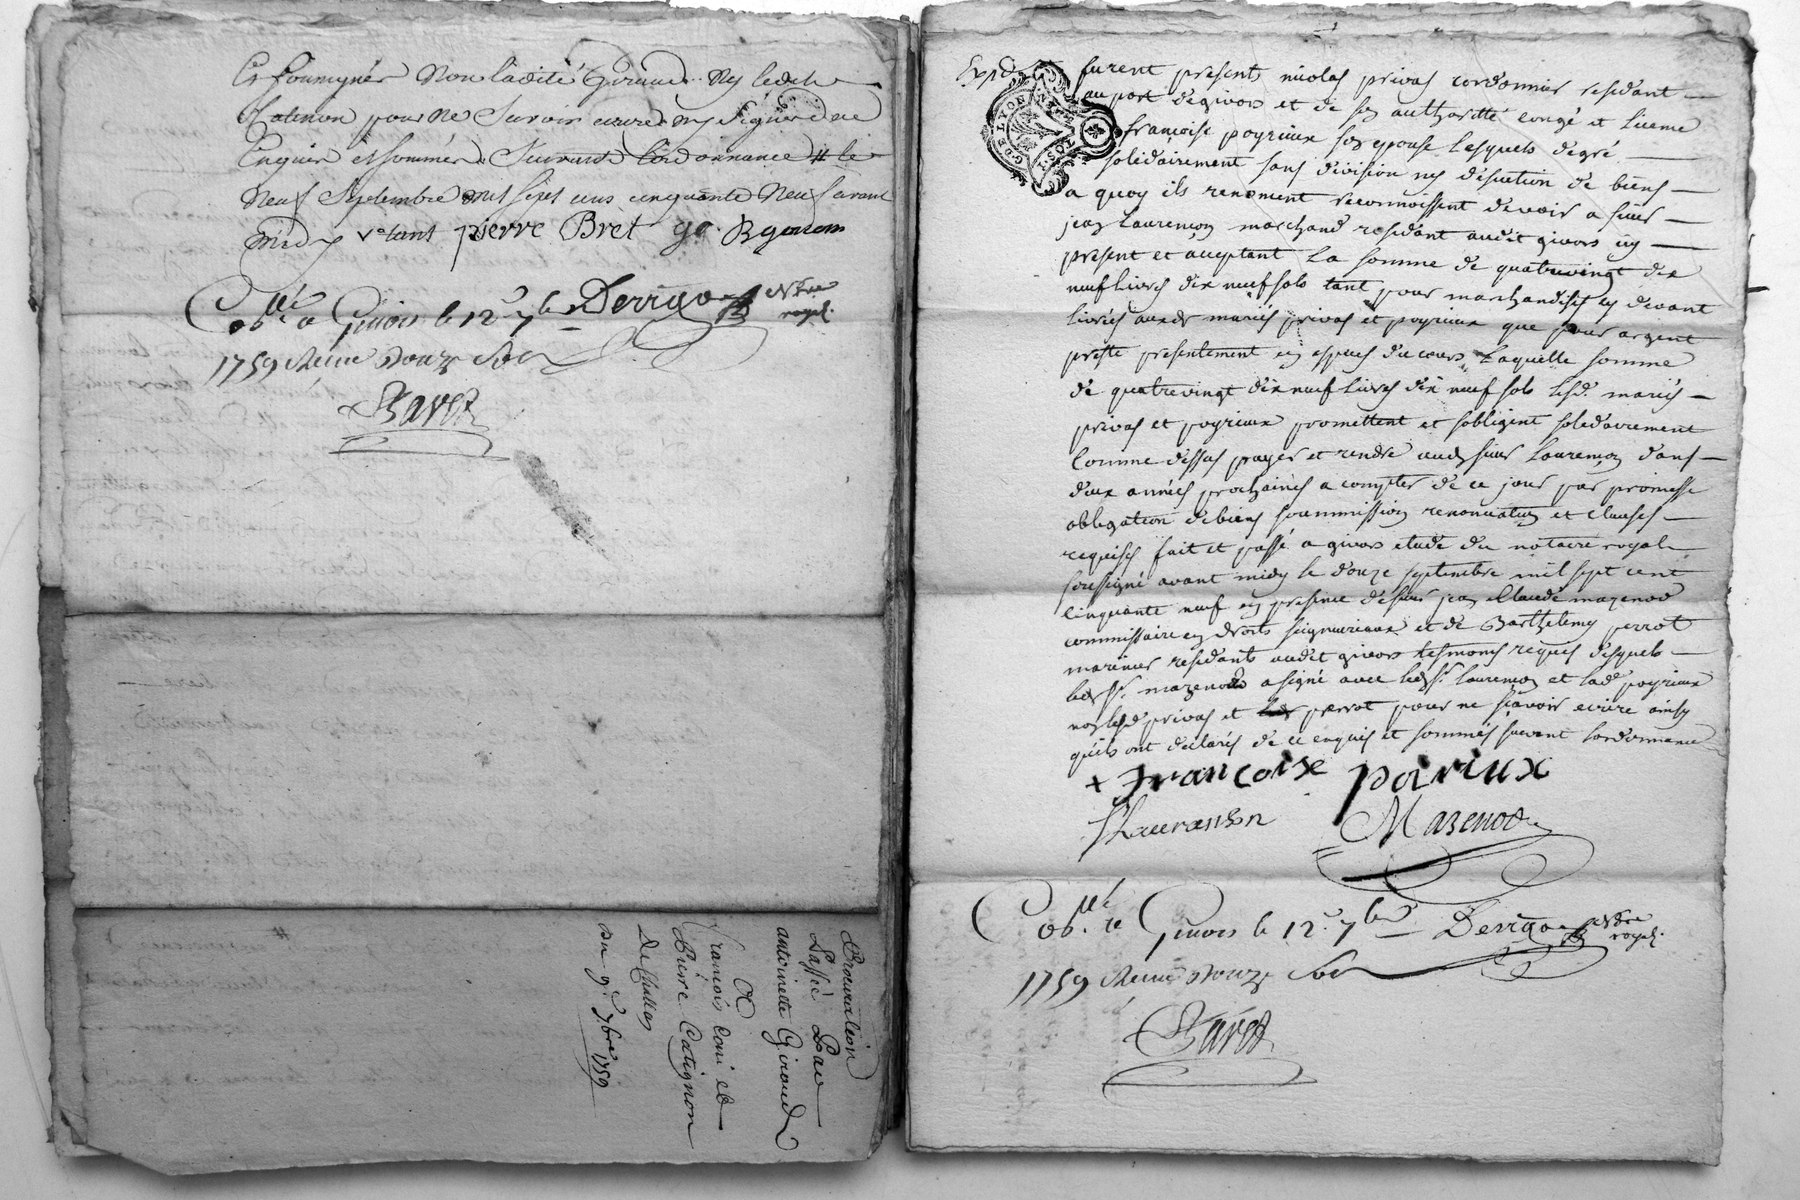 et soussignés Non ladite Giroud ny ledit
Catinon pour ne Scavoir ecrire ny Signer de ce
Enquis et sommés Suivant L'ordonnance # le
Neuf Septembre mil sept cens cinquante Neuf avant
midy pierre Bret
Coll.é a Givors le 12.e 7bre Derrigo Nore royal.
1759 Recu douze sols
Bavet
Procuration
Passée Par
antoinette Giroud
A
françois Coni et
Piere Catignon
De Challa
du 9.e 7bre 1759
Exp.d
G. DE LYON
furent presents nicolas privas cordonnier residant
au port de givors et de son authoritté congé et licence
françoise poyrieux son epouse lesquels de gré
solidairement sans division ny discution de biens
a quoy ils renoncent reconnoissent devoir a sieur
jean Laurençon marchand residant audit givors icy
present et acceptant la somme de quatrevingt dix
neuf Livres dix neuf sols tant pour marchandises cy devant
livrées auxds mariés privas et poyrieux que pour argent
presté presentement en especes du cours laquelle somme
de quatrevingt dix neuf Livres dix neuf sols lesd. mariés
privas et poyrieux promettent et s'obligent solidairement
comme dessus payer et rendre aud sieur Laurençon dans
deux années prochaines a compter de ce jour par promesse
obligation de biens soummission renonciation et clauses
requises fait et passé a givors etude du notaire royal
soussigné avant midy le douze septembre mil sept cent
cinquante neuf en presence de sieur jean Claude mazenod
commissaire en droits seigneuriaux et de Barthelemy perrot
marinier residants audit givors tesmoins requis desquels
led Sr. mazenod a signé avec led Sr. Laurençon et lade poyrieux
non led privas et perrot pour ne sçavoir ecrire ainsy
qu'ils ont declarés de ce enquis et sommés suivant lordonnance
+ françoise poirieux
JLauranson Mazenod
Coll.é a Givors le 12.e 7bre Derrigo Nore royal.
1759 Recu douze sols
Bavet